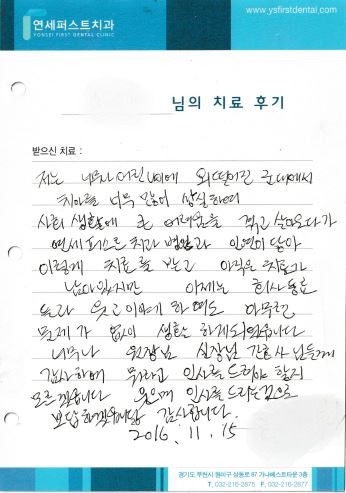 연세퍼스트치과
YONSEI FIRST DENTAL CLINIC
www.ysfirstdental.com
님의 치료 후기
받으신 치료 :
저는 너무나 어린 나이에 외떨어진 군대에서
치아를 너무 많이 상실하여
사회 생활에 큰 어려움을 겪고 살아오다가
연세퍼스트 치과 병원과 인연이 닿아
이렇게 치료를 받고 아직은 치료가
남아있지만 이제는 회사 동료
들과 웃고 이야기 하여도 아무런
문제가 없이 생활 하게되었습니다
너무나 원장님 실장님 간호사님들께
감사하며 뭐라고 인사를 드려야 할지
모르겠습니다 웃으며 인사를 드리는걸로
보답하겠습니다 감사합니다.
2016. 11. 15
경기도 부천시 원미구 상동로 87 가나베스트타운 3층
T. 032-216-2875 F. 032-216-2877